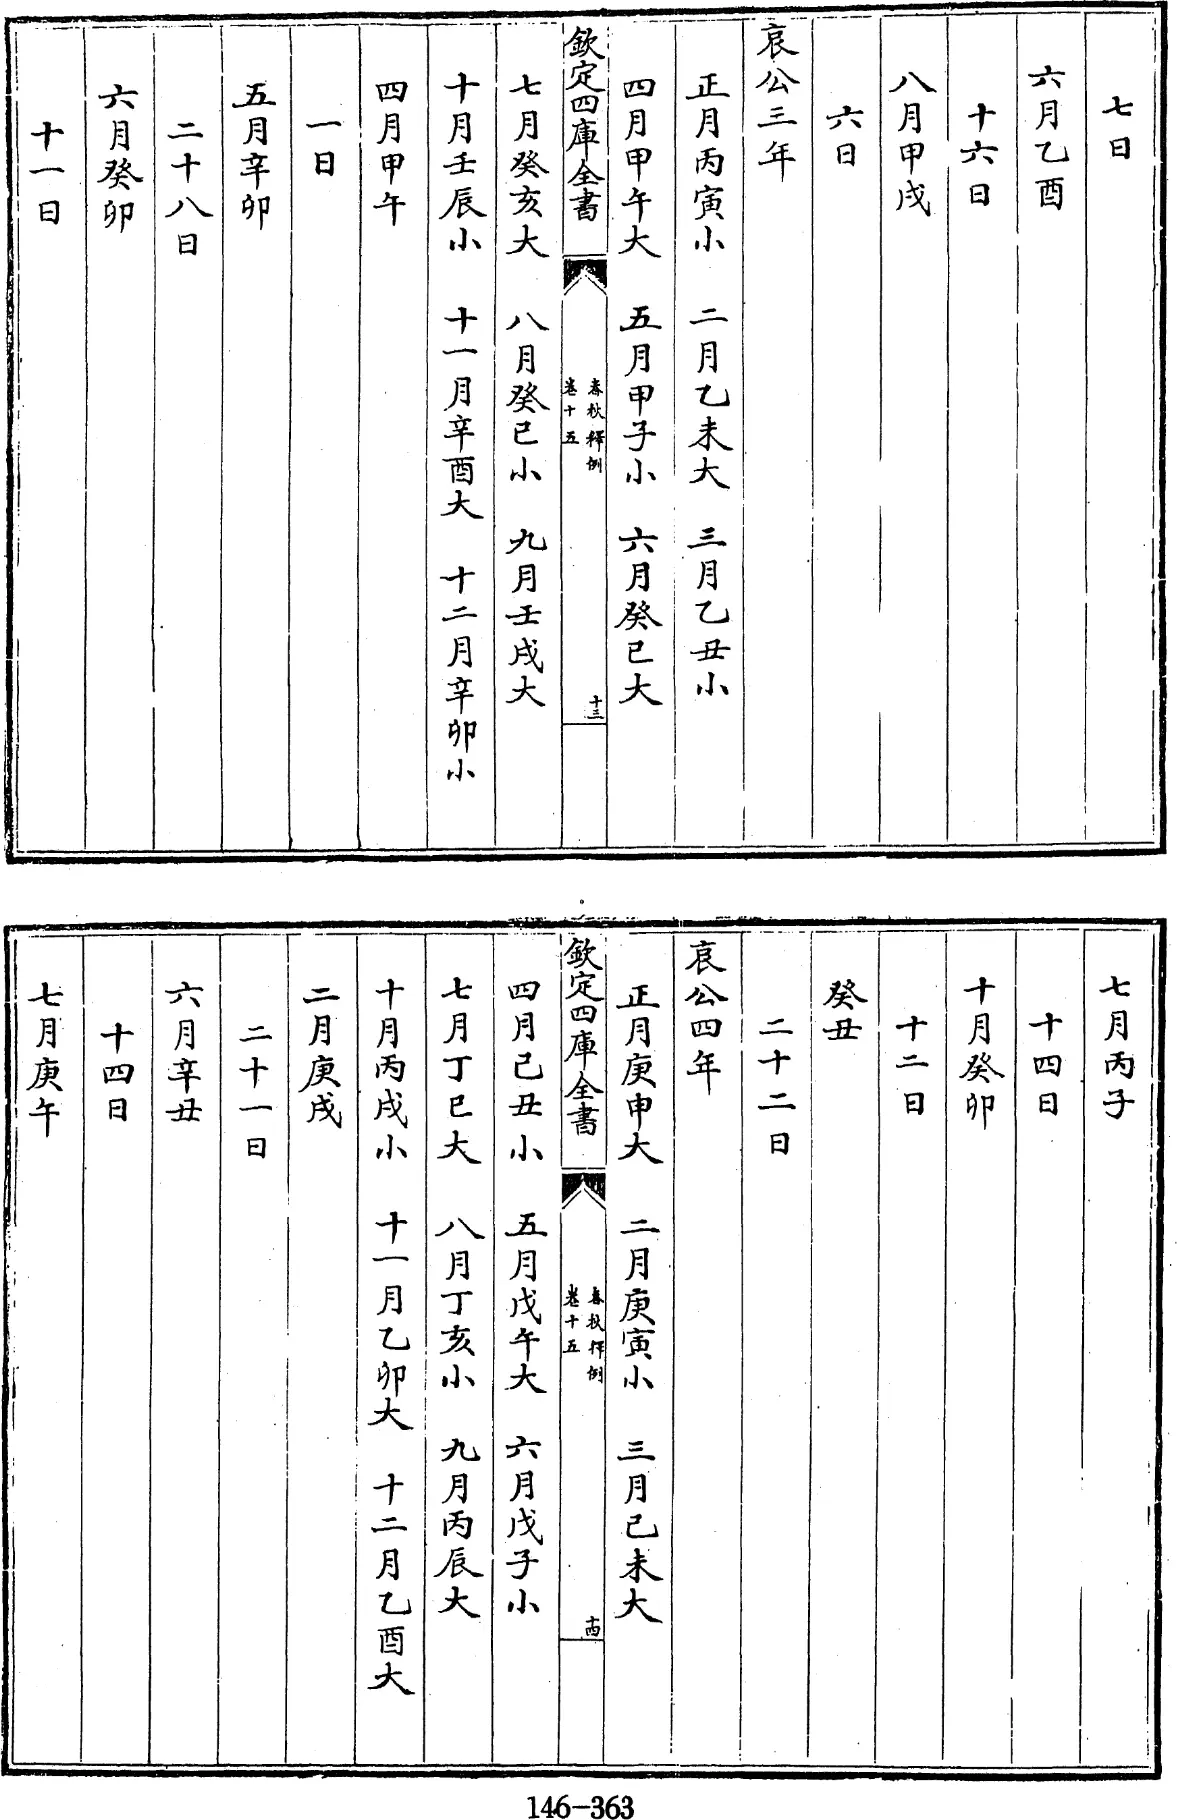 七日
六月乙酉
十六日
八月甲戌
六日
哀公三年
正月丙寅小　二月乙未大　三月乙丑小
四月甲午大　五月甲子小　六月癸巳大
欽定四庫全書
春秋釋例
卷十五
十三
七月癸亥大　八月癸巳小　九月壬戌大
十月壬辰小　十一月辛酉大　十二月辛卯小
四月甲午
一日
五月辛卯
二十八日
六月癸卯
十一日
七月丙子
十四日
十月癸卯
十二日
癸丑
二十二日
哀公四年
正月庚申大　二月庚寅小　三月己未大
欽定四庫全書
春秋釋例
卷十五
十四
四月己丑小　五月戊午大　六月戊子小
七月丁巳大　八月丁亥小　九月丙辰大
十月丙戌小　十一月乙卯大　十二月乙酉大
二月庚戌
二十一日
六月辛丑
十四日
七月庚午
146-363